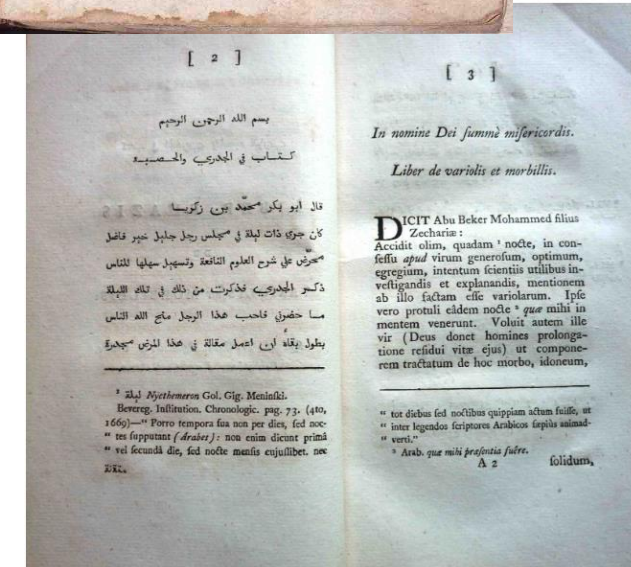 [ 2 ]
بسم الله الرحمن الرحيم
كتاب في الجدري والحصبة
قال ابو بكر محمّد بن زكريا
كان جري ذات ليلة في مجلس رجل جليل خير فاضل
محرّض علي شرح العلوم النافعة وتسهيل سهلها للناس
ذكر الجدري فذكرت من ذلك في تلك الليلة
ما حضرني فاحب هذا الرجل مانح الله الناس
بطول بقاه ان اعمل مقالة في هذا المرض مجدرة
¹ ليلة Nycthemeron Gol. Gig. Meninſki.
Bevereg. Inſtitution. Chronologic. pag. 73. (4to,
1669)—“ Porro tempora ſua non per dies, ſed noc-
“ tes ſupputant (Arabes): non enim dicunt primâ
“ vel ſecundâ die, ſed nocte menſis cujuſlibet. nec
[ 3 ]
In nomine Dei ſummè miſericordis.
Liber de variolis et morbillis.
DICIT Abu Beker Mohammed filius
Zechariæ:
Accidit olim, quadam ¹ nocte, in con-
ſeſſu apud virum generoſum, optimum,
egregium, intentum ſcientiis utilibus in-
veſtigandis et explanandis, mentionem
ab illo factam eſſe variolarum. Ipſe
vero protuli eâdem nocte ² quæ mihi in
mentem venerunt. Voluit autem ille
vir (Deus donet homines prolonga-
tione reſidui vitæ ejus) ut compone-
rem tractatum de hoc morbo, idoneum,
“ tot diebus ſed noctibus quippiam actum fuiſſe, ut
“ inter legendos ſcriptores Arabicos ſæpiùs animad-
“ verti.”
² Arab. quæ mihi præſentia fuêre.
A 2 ſolidum,